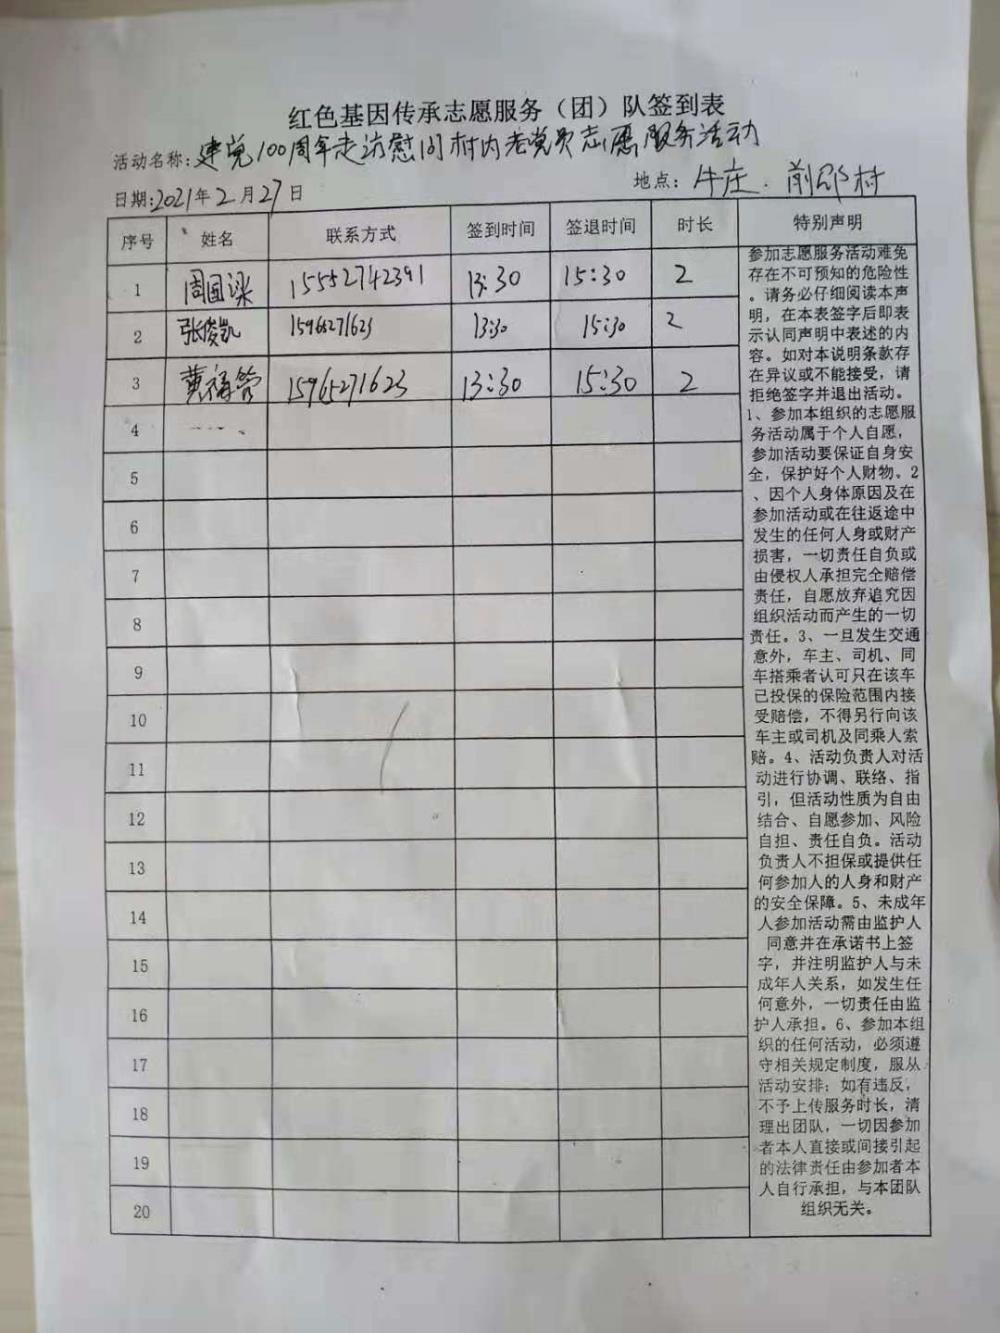 红色基因传承志愿服务（团）队签到表
活动名称：建党100周年走访慰问村内老党员志愿服务活动
日期：2021年2月27日 地点：牛庄.前邵村
序号 姓名 联系方式 签到时间 签退时间 时长 特别声明
1 周国梁 15552742391 13:30 15:30 2
2 张俊凯 15965271623 13:30 15:30 2
3 黄 15965271623 13:30 15:30 2
4
5
6
7
8
9
10
11
12
13
14
15
16
17
18
19
20
参加志愿服务活动难免
存在不可预知的危险性
。请务必仔细阅读本声
明，在本表签字后即表
示认同声明中表述的内
容。如对本说明条款存
在异议或不能接受，请
拒绝签字并退出活动。
1、参加本组织的志愿服
务活动属于个人自愿，
参加活动要保证自身安
全，保护好个人财物。2
、因个人身体原因及在
参加活动或在往返途中
发生的任何人身或财产
损害，一切责任自负或
由侵权人承担完全赔偿
责任，自愿放弃追究因
组织活动而产生的一切
责任。3、一旦发生交通
意外，车主、司机、同
车搭乘者认可只在该车
已投保的保险范围内接
受赔偿，不得另行向该
车主或司机及同乘人索
赔。4、活动负责人对活
动进行协调、联络、指
引，但活动性质为自由
结合、自愿参加、风险
自担、责任自负。活动
负责人不担保或提供任
何参加人的人身和财产
的安全保障。5、未成年
人参加活动需由监护人
同意并在承诺书上签
字，并注明监护人与未
成年人关系，如发生任
何意外，一切责任由监
护人承担。6、参加本组
织的任何活动，必须遵
守相关规定制度，服从
活动安排；如有违反，
不予上传服务时长，清
理出团队，一切因参加
者本人直接或间接引起
的法律责任由参加者本
人自行承担，与本团队
组织无关。